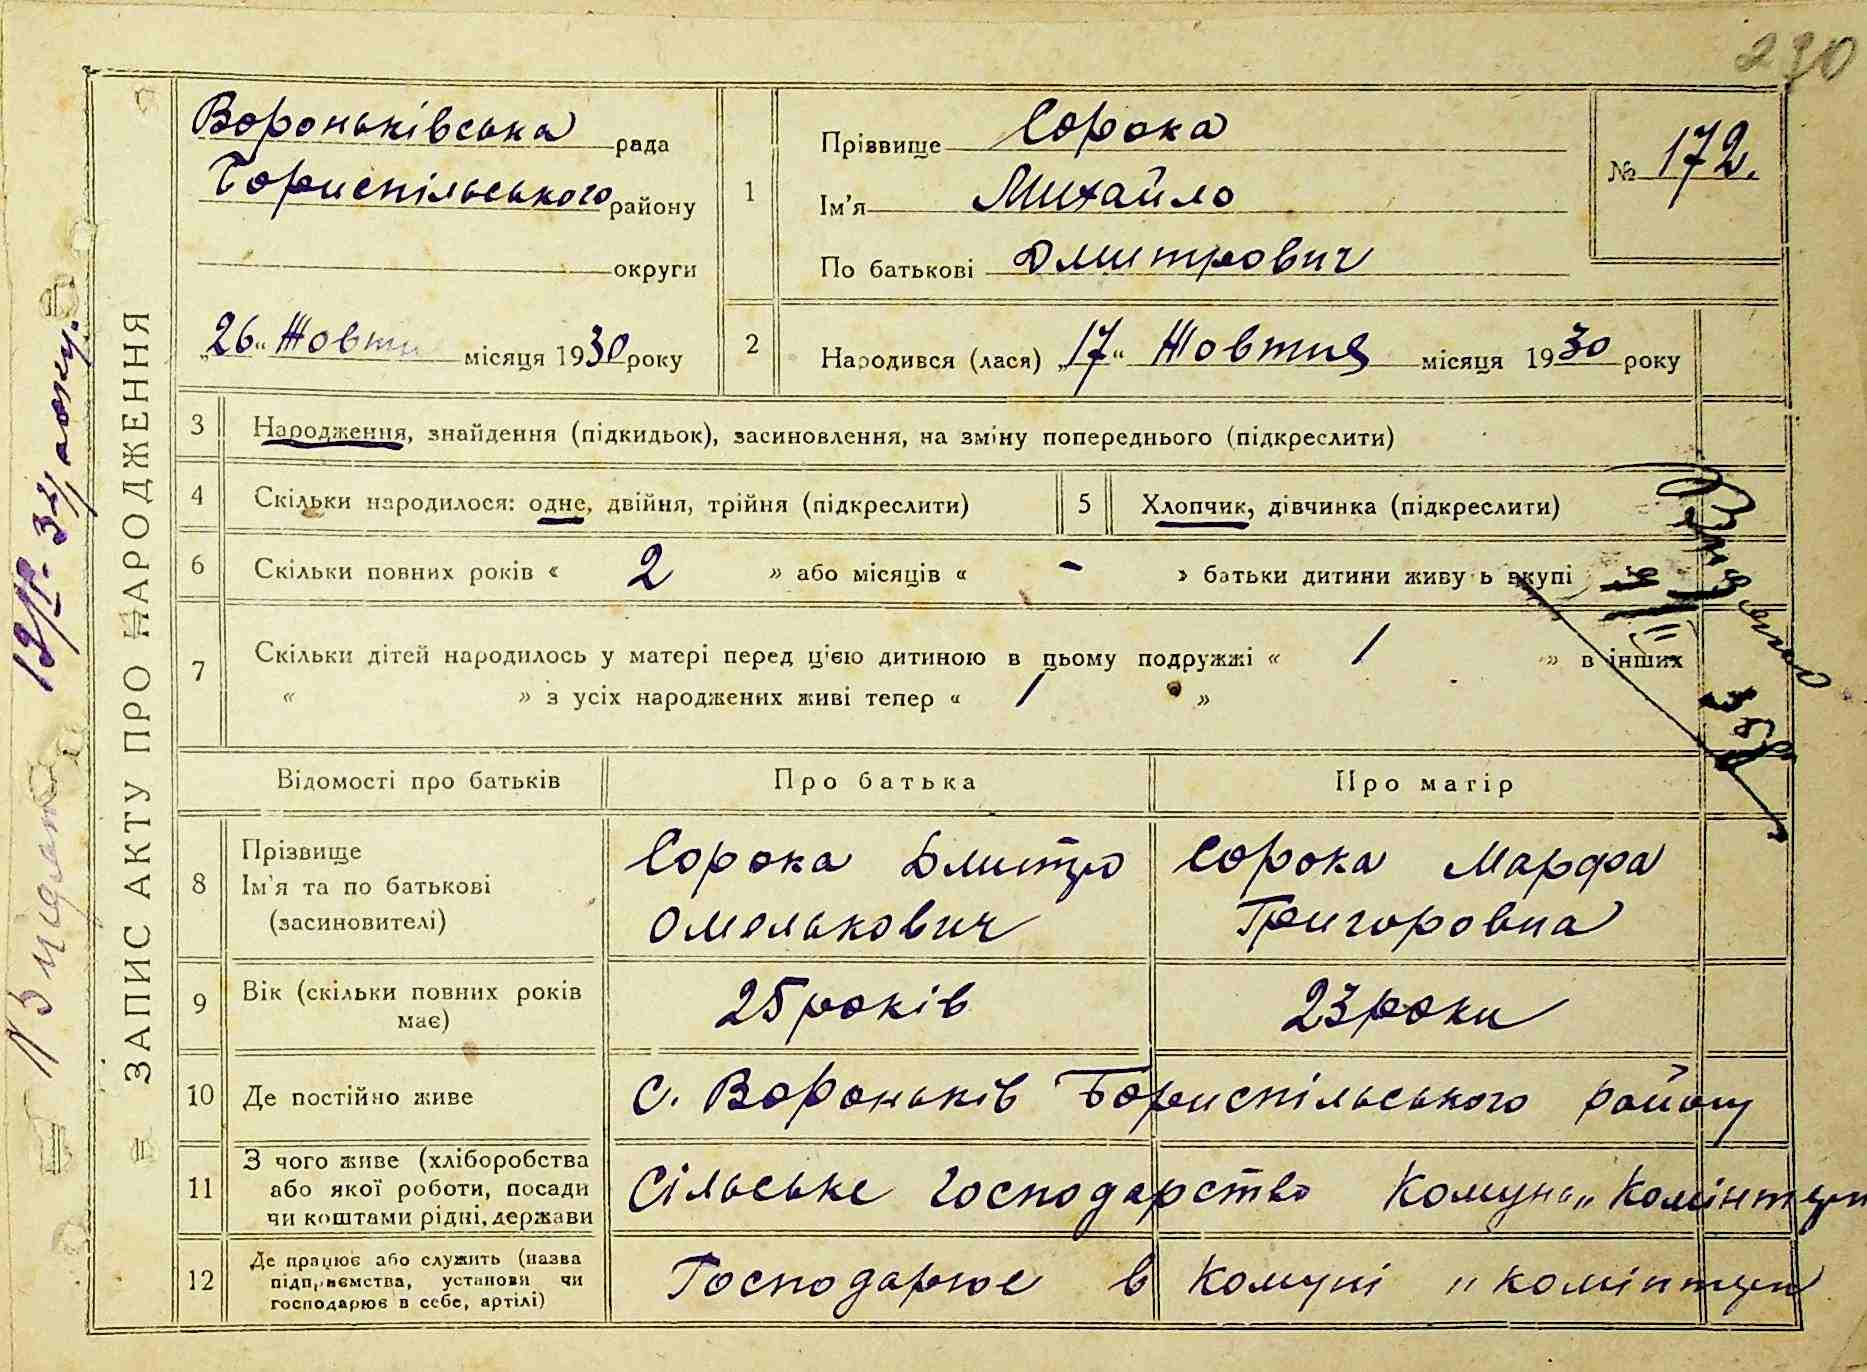 230
Вороньківська рада
Бориспільського району
округи
„26“ Жовтн місяця 1930 року
1
Прізвище Сорока
Ім'я Михайло
По батькові Дмитрович
№ 172.
2
Народився (лася) „17“ Жовтня місяця 1930 року
ЗАПИС АКТУ ПРО НАРОДЖЕННЯ
3 Народження, знайдення (підкидьок), засиновлення, на зміну попереднього (підкреслити)
4 Скільки народилося: одне, двійня, трійня (підкреслити)
5 Хлопчик, дівчинка (підкреслити)
6 Скільки повних років « 2 » або місяців « - » батьки дитини живу ь вкупі
7 Скільки дітей народилось у матері перед цією дитиною в цьому подружжі « 1 » в інших
« » з усіх народжених живі тепер « 1 »
Відомості про батьків Про батька Про матір
8 Прізвище
Ім'я та по батькові
(засиновителі)
Сорока Дмитро
Омелькович
Сорока Марфа
Григоровна
9 Вік (скільки повних років
має)
25 років
23 роки
10 Де постійно живе
с. Вороньків Бориспільського району
11 З чого живе (хліборобства
або якої роботи, посади
чи коштами рідні, держави
Сільське господарство Комуна „Комінтерн
12 Де працює або служить (назва
підприємства, установи чи
господарює в себе, артілі)
Господарює в комуні „комінтерн